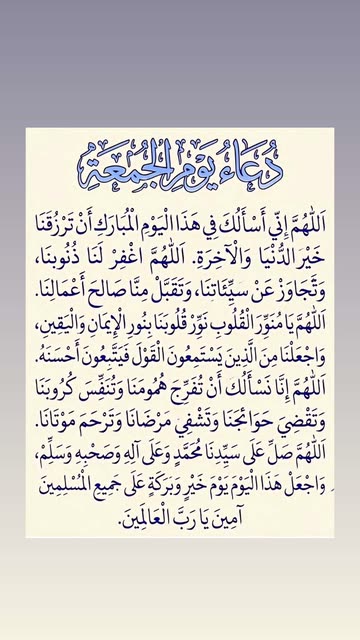 دُعَاءُ يَوْمِ الْجُمُعَةِ
اَللّٰهُمَّ إِنِّي أَسْأَلُكَ فِي هَذَا الْيَوْمِ الْمُبَارَكِ أَنْ تَرْزُقَنَا
خَيْرَ الدُّنْيَا وَالْآخِرَةِ. اَللّٰهُمَّ اغْفِرْ لَنَا ذُنُوبَنَا،
وَتَجَاوَزْ عَنْ سَيِّئَاتِنَا، وَتَقَبَّلْ مِنَّا صَالِحَ أَعْمَالِنَا.
اَللّٰهُمَّ يَا مُنَوِّرَ الْقُلُوبِ نَوِّرْ قُلُوبَنَا بِنُورِ الْإِيمَانِ وَالْيَقِينِ،
وَاجْعَلْنَا مِنَ الَّذِينَ يَسْتَمِعُونَ الْقَوْلَ فَيَتَّبِعُونَ أَحْسَنَهُ.
اَللّٰهُمَّ إِنَّا نَسْأَلُكَ أَنْ تُفَرِّجَ هُمُومَنَا وَتُنَفِّسَ كُرُوبَنَا
وَتَقْضِيَ حَوَائِجَنَا وَتَشْفِيَ مَرْضَانَا وَتَرْحَمَ مَوْتَانَا.
اَللّٰهُمَّ صَلِّ عَلَى سَيِّدِنَا مُحَمَّدٍ وَعَلَى آلِهِ وَصَحْبِهِ وَسَلِّمْ،
وَاجْعَلْ هَذَا الْيَوْمَ يَوْمَ خَيْرٍ وَبَرَكَةٍ عَلَى جَمِيعِ الْمُسْلِمِينَ
آمِينَ يَا رَبَّ الْعَالَمِينَ.